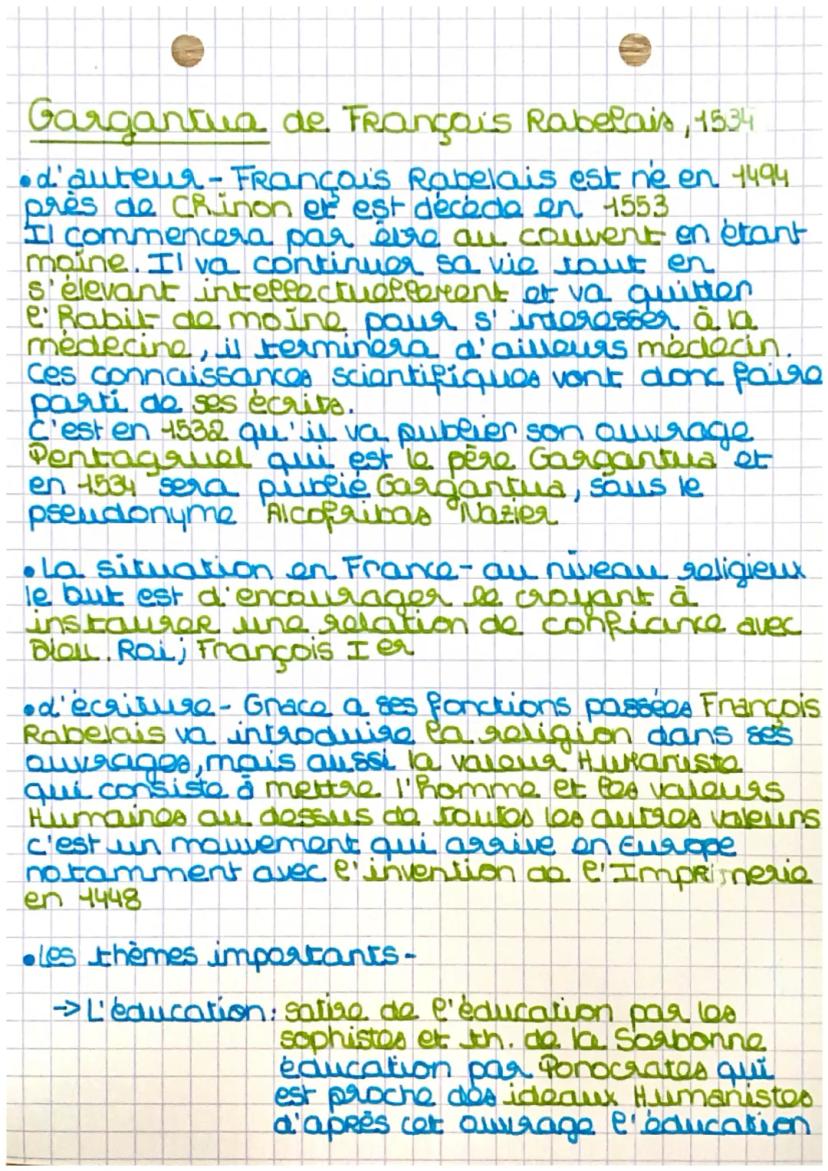 Gargantua de François Rabelais, 1534
• L'auteur - François Rabelais est né en 1494
près de Chinon et est décédé en 1553
Il commencera par être au couvent en étant
moine. Il va continuer sa vie tout en
s'élevant intellectuellement et va quitter
l'habit de moine pour s'interesser à la
médecine, il terminera d'ailleurs médecin.
Ces connaissances scientifiques vont donc faire
parti de ses écrits.
C'est en 1532 qu'il va publier son ouvrage
Pentagruel qui est le père Gargantua et
en 1534 sera publié Gargantua, sous le
pseudonyme Alcofribas Nazier
• La situation en France - au niveau religieux
le but est d'encourager le croyant à
instaurer une relation de confiance avec
Dieu. Roi; François Ier
• L'écriture - Grace a ses fonctions passées François
Rabelais va introduire la religion dans ses
ouvrages, mais aussi la valeur Humaniste
qui consiste à mettre l'homme et les valeurs
Humaines au dessus de toutes les autres valeurs
c'est un mouvement qui arrive en Europe
notamment avec l'invention de l'Imprimerie
en 1448
• Les thèmes importants -
→ L'éducation: satire de l'éducation par les
sophistes et th. de la Sorbonne
éducation par Ponocrates qui
est proche des ideaux Humanistes
d'après cet ouvrage l'éducation